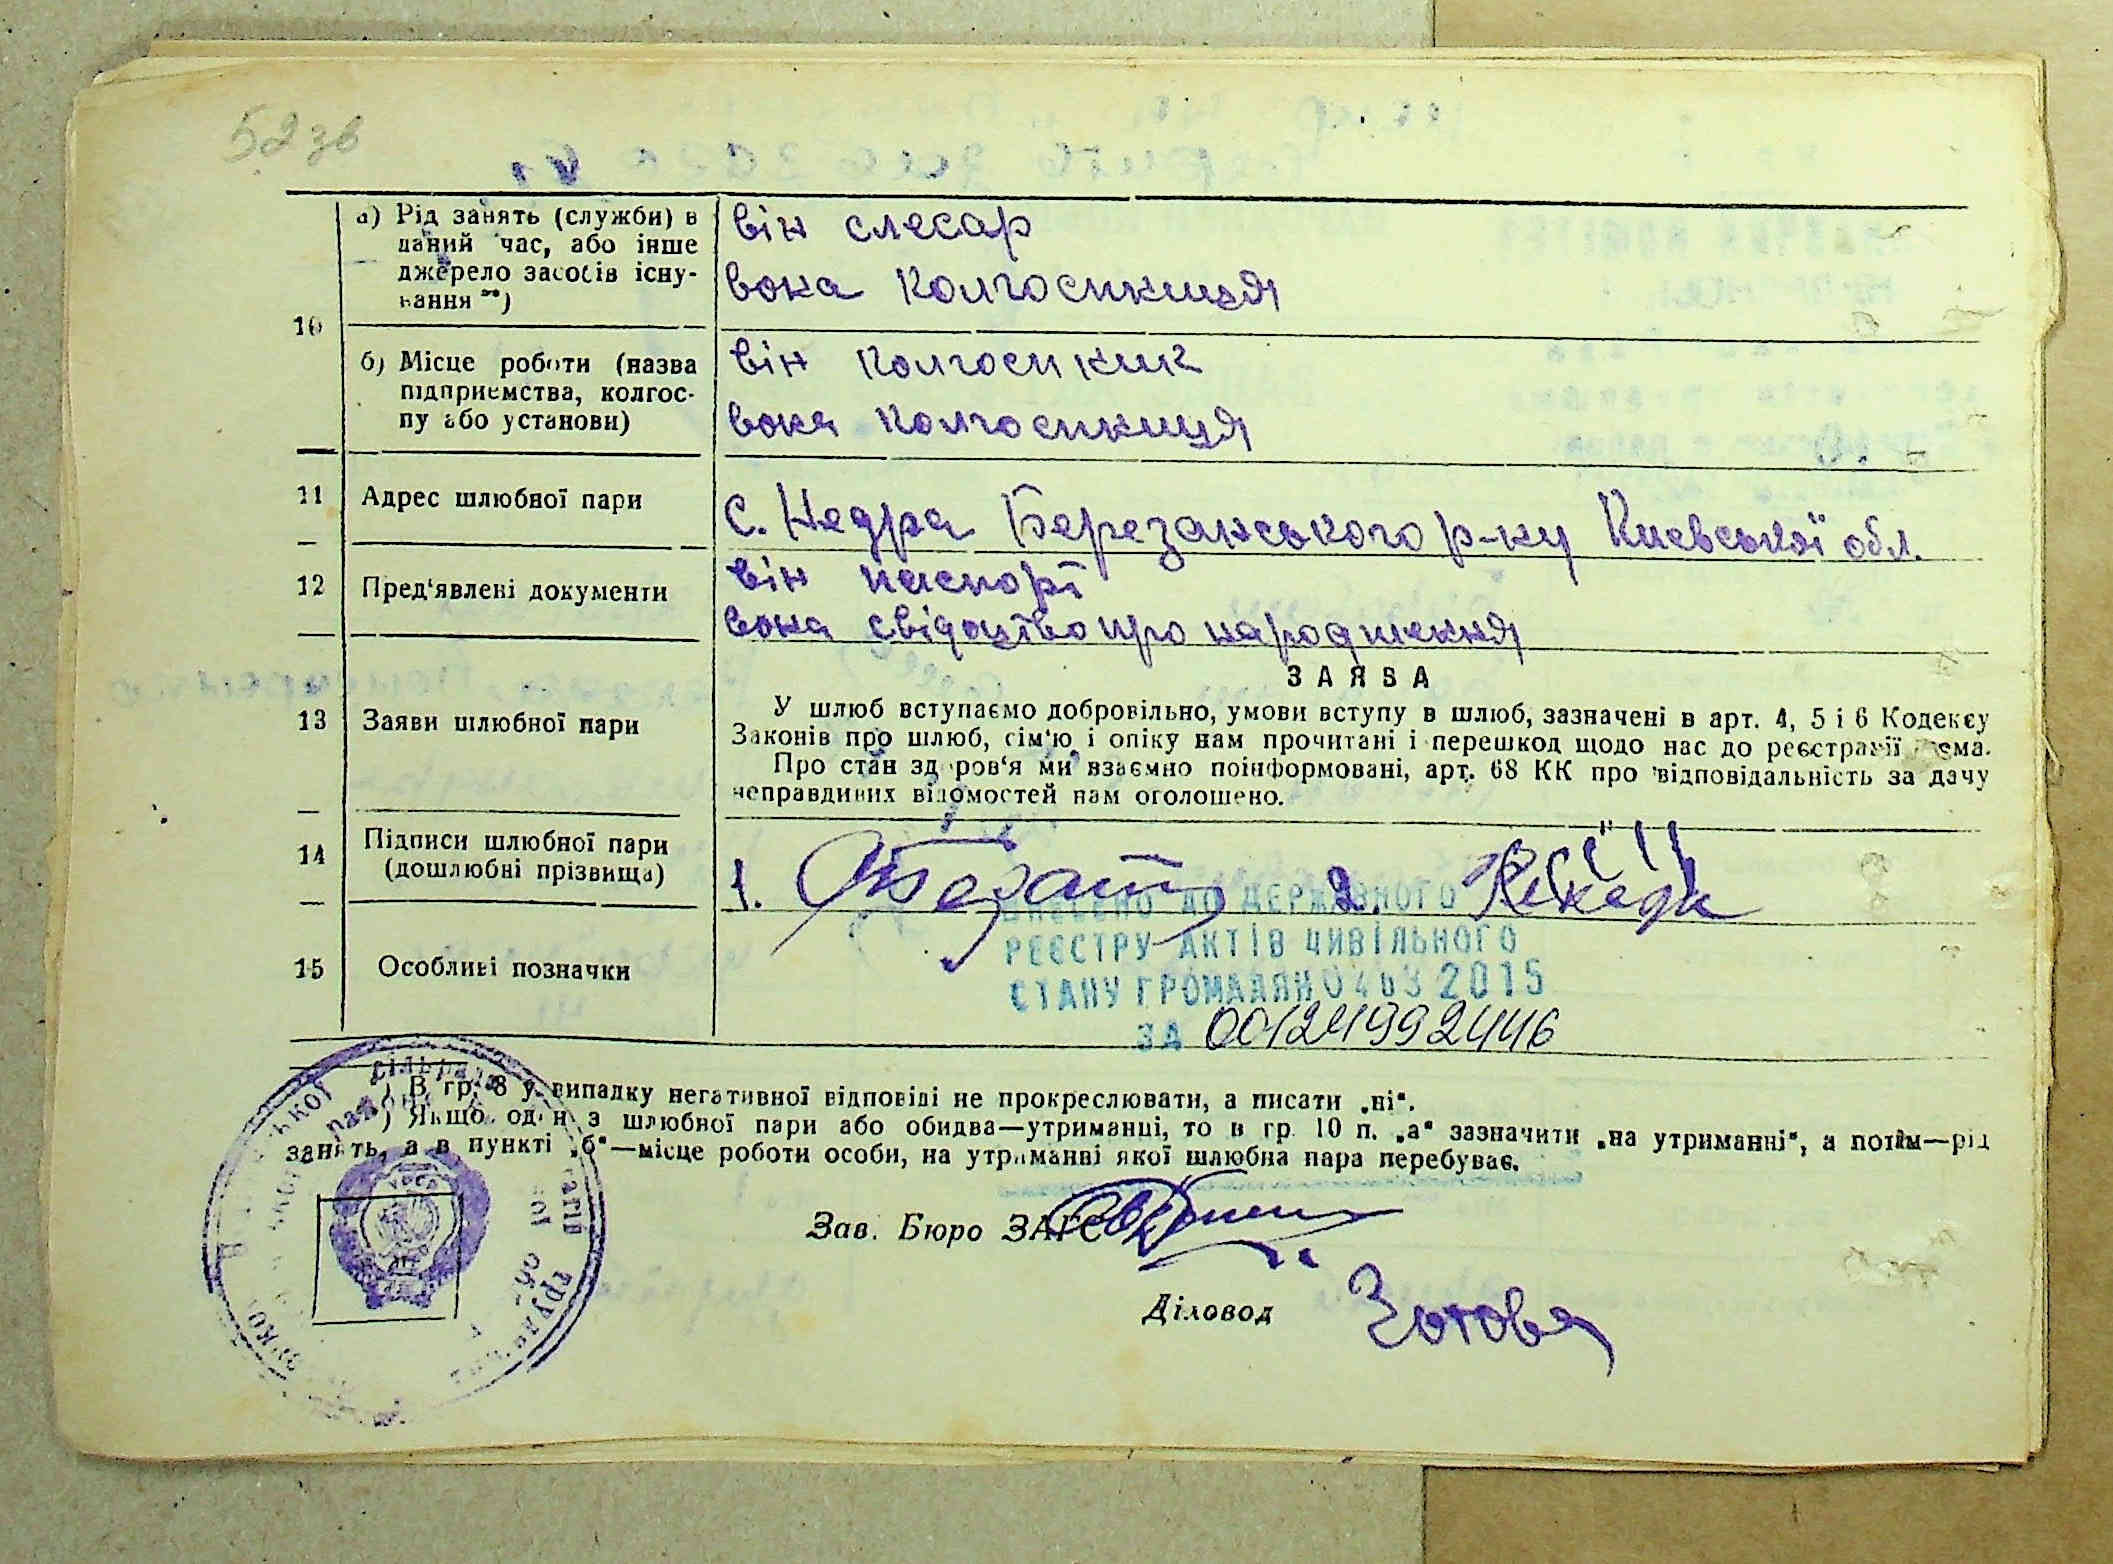 52 зв
10
а) Рід занять (служби) в
даний час, або інше
джерело засобів існу-
вання **)
він слесар
вона колгоспниця
б) Місце роботи (назва
підприємства, колгос-
пу або установи)
він колгоспник
вона колгоспниця
11
Адрес шлюбної пари
с. Недра Березанського р-ну Киевської обл.
12
Пред'явлені документи
він паспорт
вона свідоцтво про народження
13
Заяви шлюбної пари
ЗАЯВА
У шлюб вступаємо добровільно, умови вступу в шлюб, зазначені в арт. 4, 5 і 6 Кодексу
Законів про шлюб, сім'ю і опіку нам прочитані і перешкод щодо нас до реєстрації нема.
Про стан здоров'я ми взаємно поінформовані, арт. 68 КК про відповідальність за дачу
неправдивих відомостей нам оголошено.
14
Підписи шлюбної пари
(дошлюбні прізвища)
1. 2.
15
Особливі позначки
ВНЕСЕНО ДО ДЕРЖАВНОГО
РЕЄСТРУ АКТІВ ЦИВІЛЬНОГО
СТАНУ ГРОМАДЯН 04 03 2015
ЗА 001241992446
) В гр. 8 у випадку негативної відповіді не прокреслювати, а писати „ні“.
) Якщо один з шлюбної пари або обидва—утриманці, то в гр. 10 п. „а“ зазначити „на утриманні“, а потім—рід
занять, а в пункті „б“—місце роботи особи, на утриманні якої шлюбна пара перебуває.
Зав. Бюро ЗАГС
Діловод Зотова